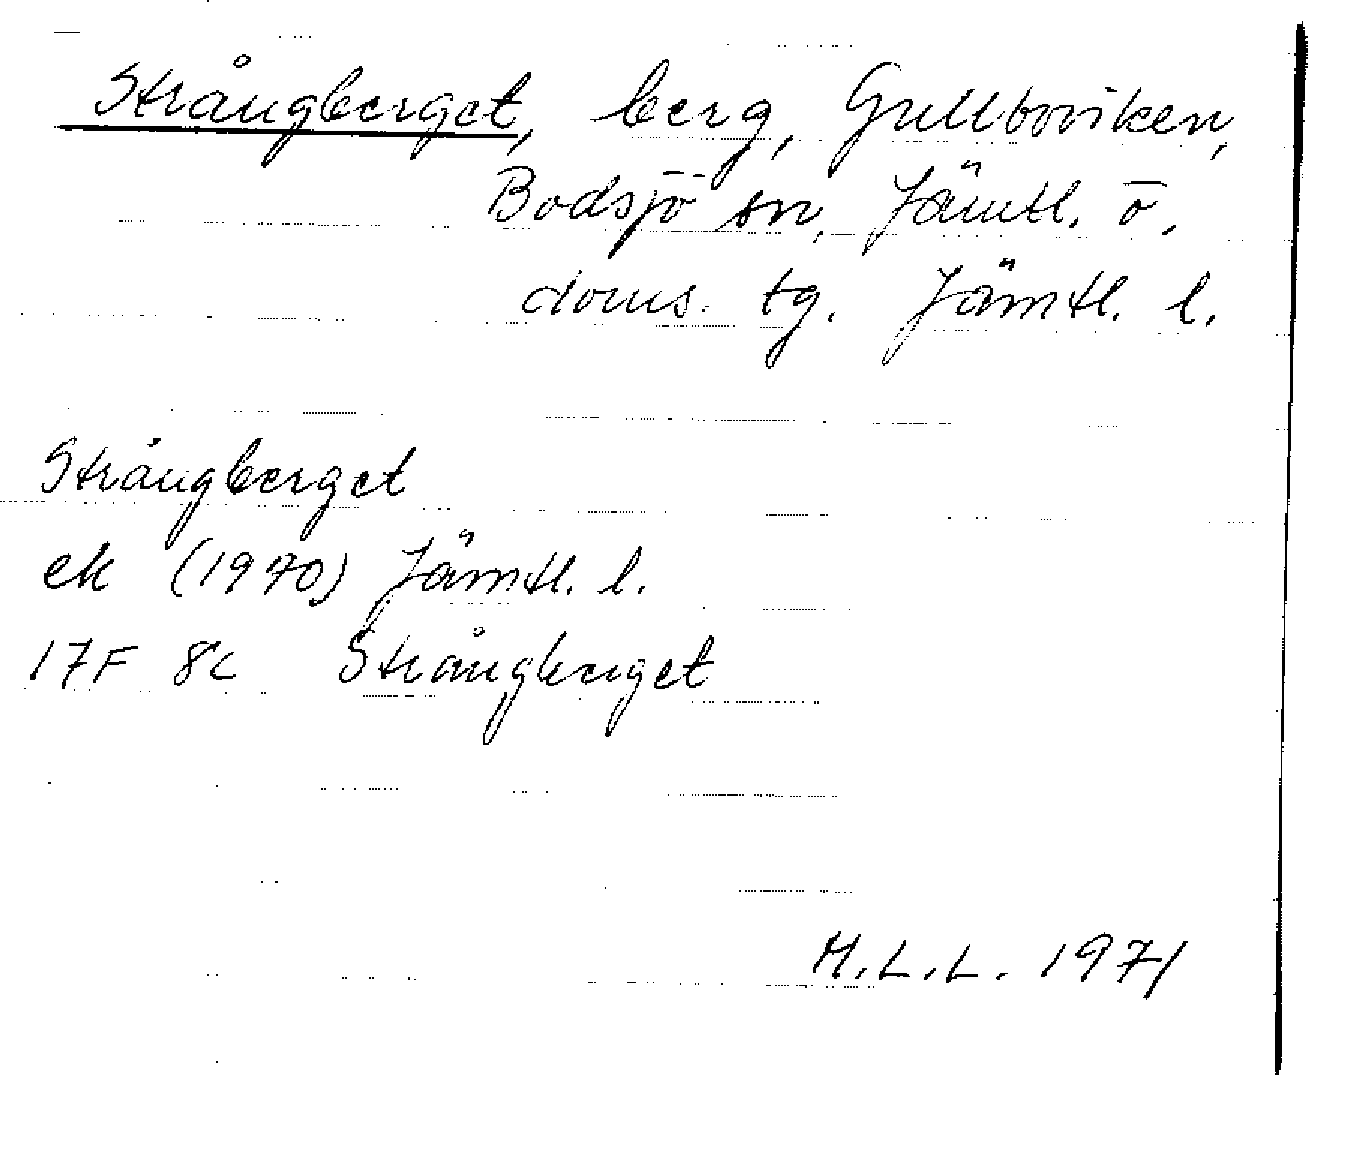 Strångberget, berg, Gullboviken,
Bodsjö sn, Jämtl. ö.
doms. tg. Jämtl. l.
Strångberget
ek (1970) Jämtl. l.
17F 8c Strångberget
M.L.L. 1971